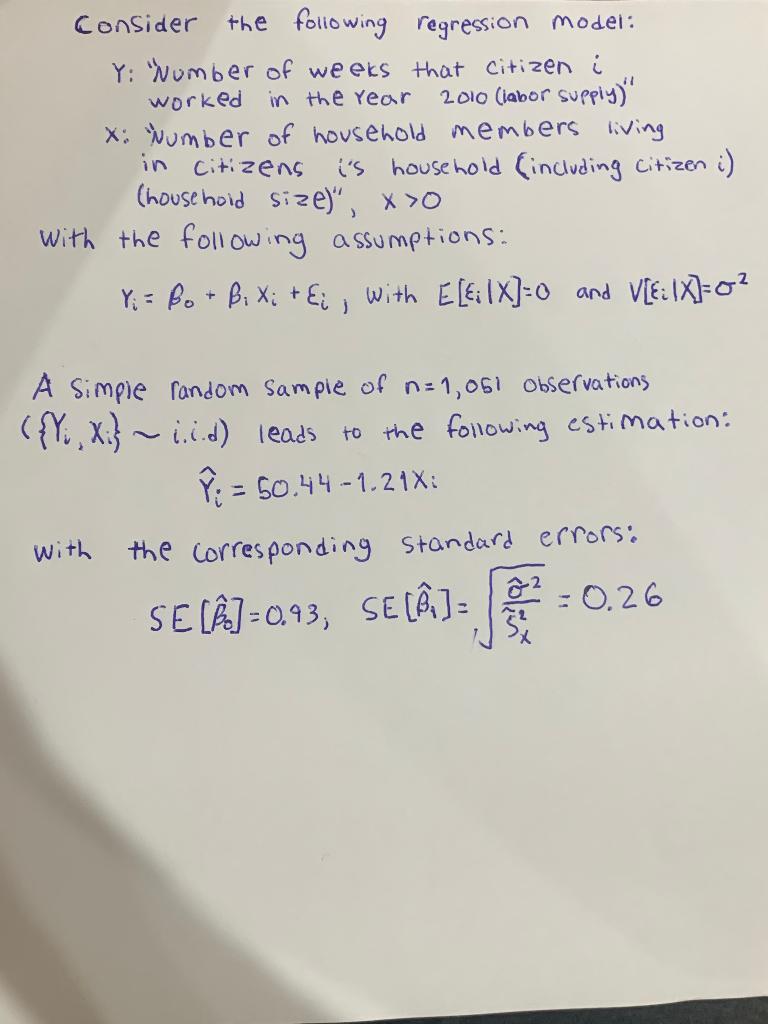 Consider the following regression model:
Y: "Number of weeks that citizen i
worked in the Year 2010 (labor supply)"
X: "Number of household members living
in citizens i's household (including citizen i)
(household size)", X>0
With the following assumptions:
Yi = β0 + β1 Xi + Ei, with E[Ei|X]=0 and V[Ei|X]=σ²
A Simple random sample of n=1,051 observations
({Yi, Xi} ~ i.i.d) leads to the following estimation:
Ŷi = 50.44 - 1.21Xi
with the corresponding standard errors:
SE[β̂0]=0.93, SE[β̂1]= √(σ̂²/S̃²x) = 0.26